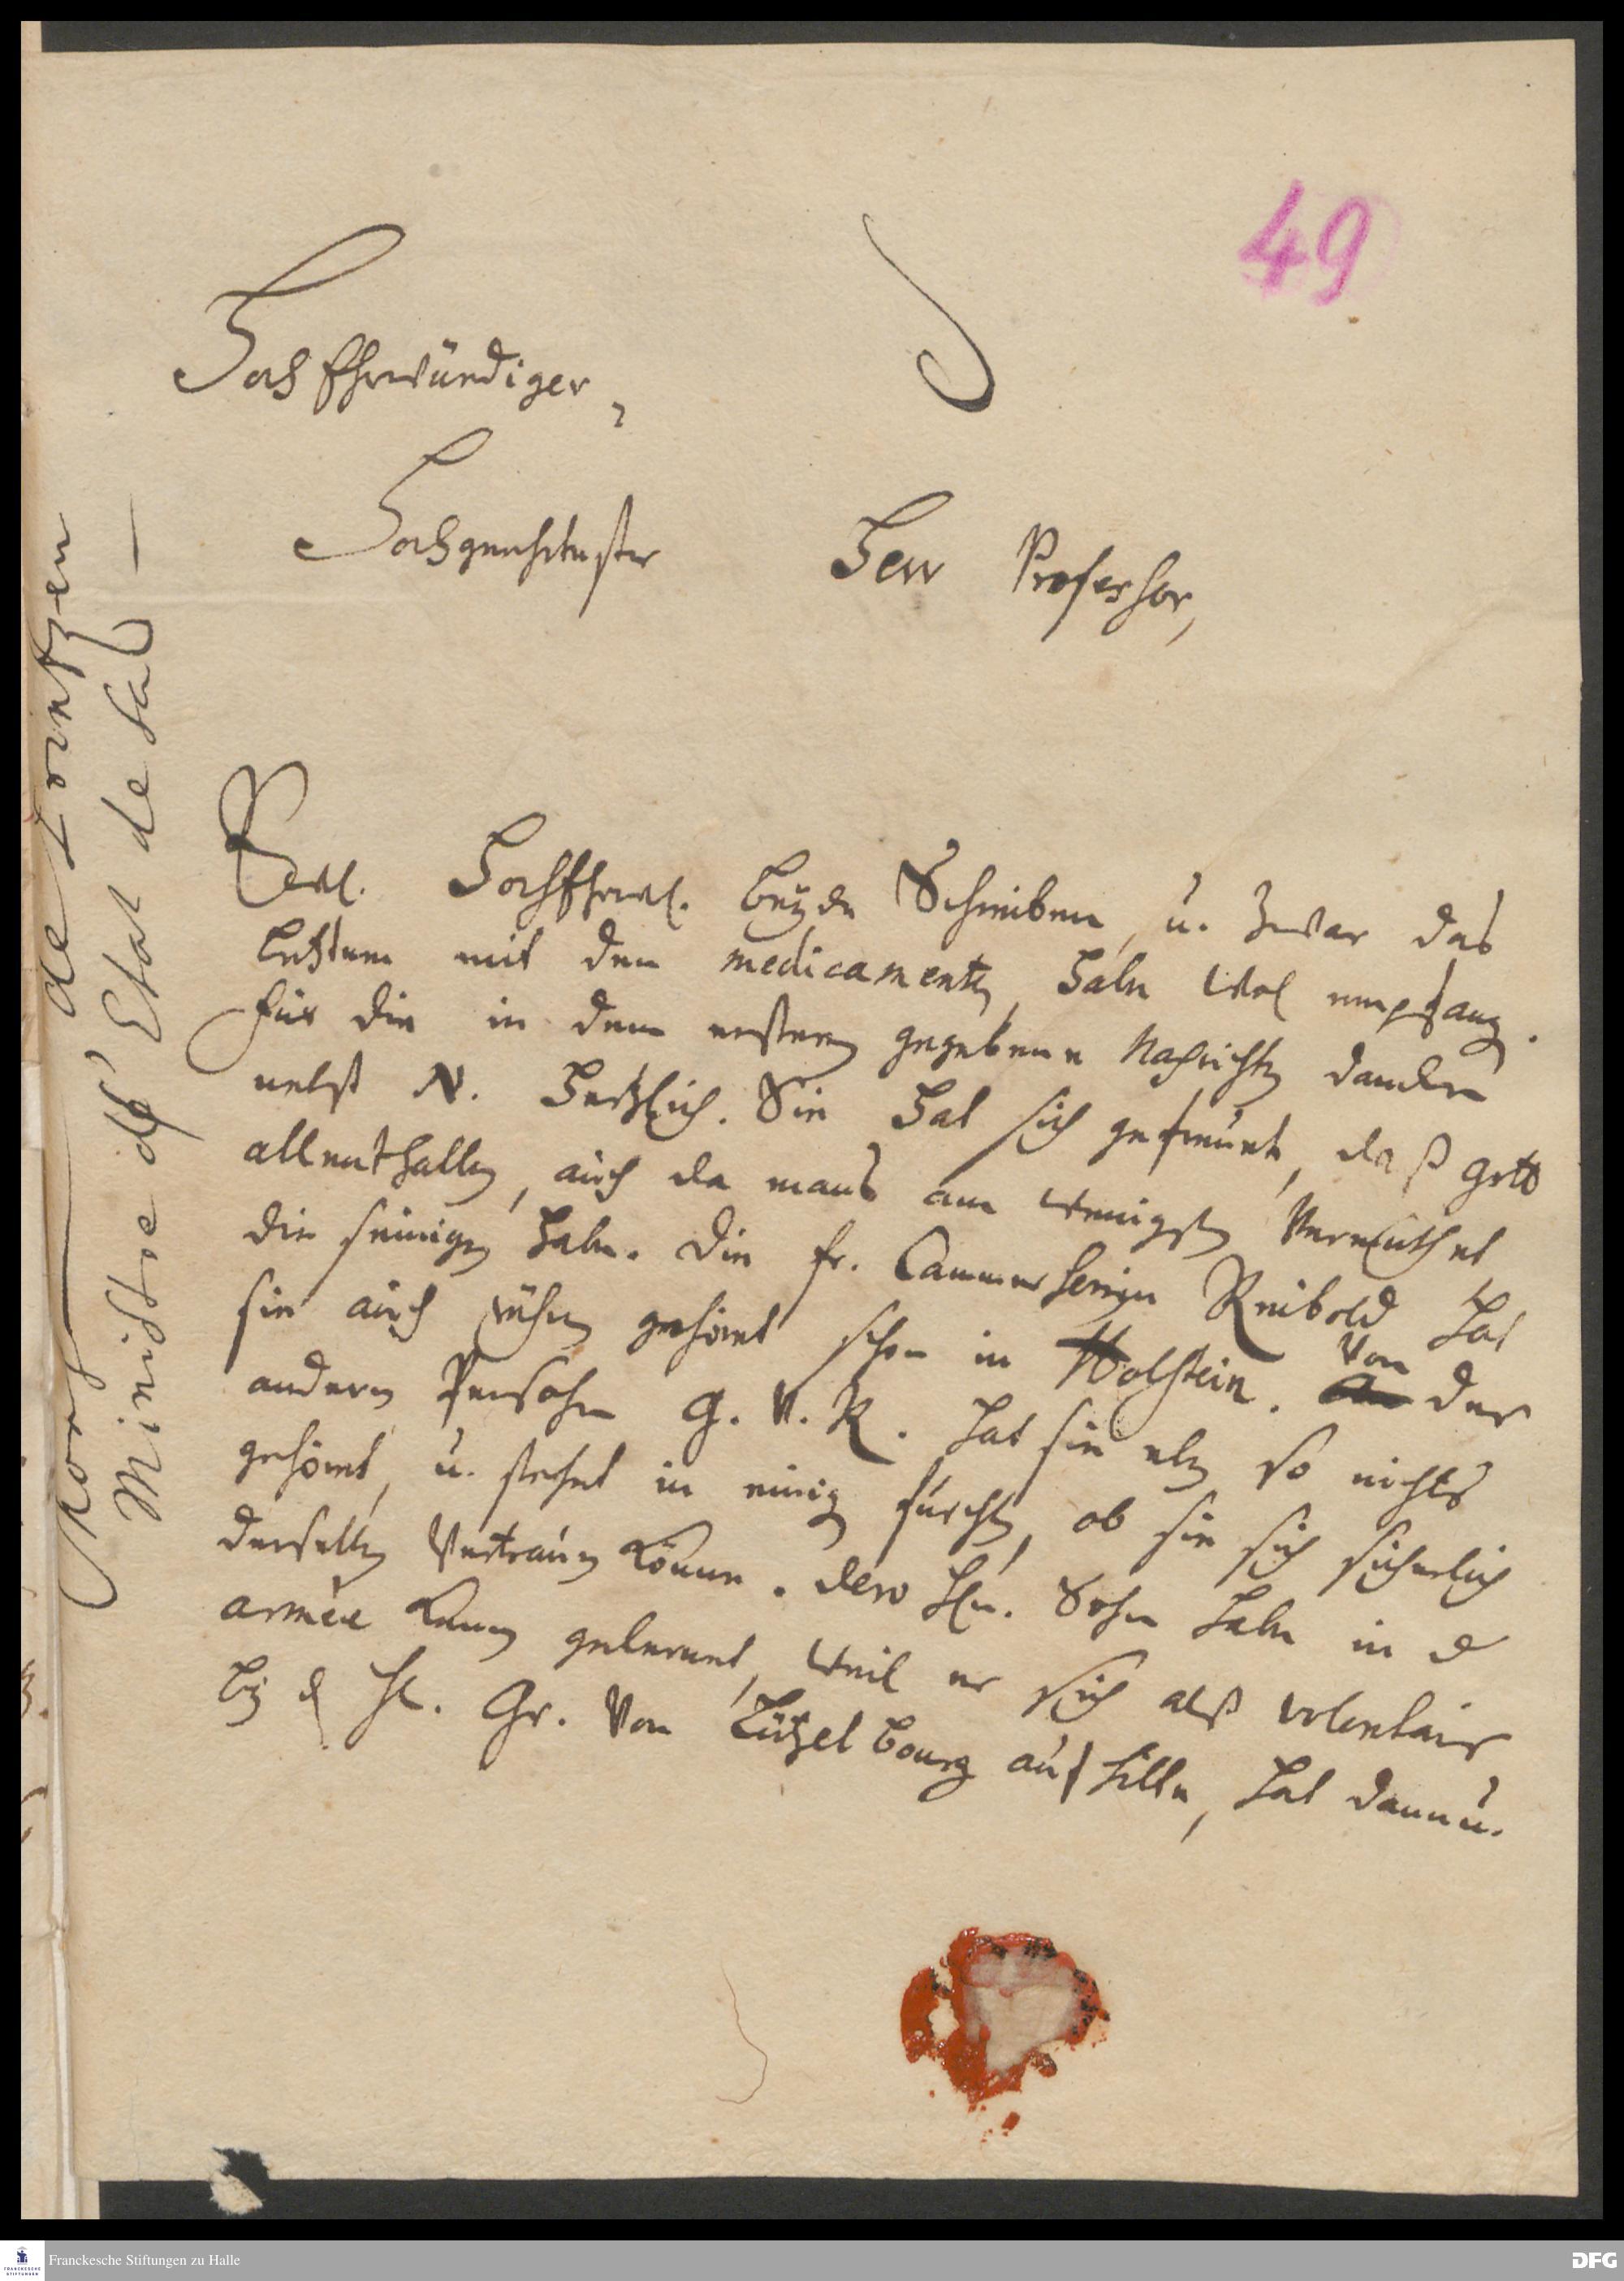 49
HochEhrwürdiger,
Hochgeehrtester Herr Professor,
Ewl. HochEhrwl. beyde Schreiben, u. zwar das
letztere mit den medicamenten, habe wol empfang.
für die in dem erstern gegebene Nachrichten dancke
nebst N. hertzlich. Sie hat sich gefreuet, daß Gott
allenthalben, auch da mans am wenigsten vermuthet
die seinigen habe. Die fr. Cammerherrin Reibold hat
sie auch rühmen gehöret schon in Holstein. Von der
andern Persohn G. V. R. hat sie eben so nichts
gehöret, u. stehet in einig furchten, ob sie sich sicherlich
derselben vertrauen könne. Dero Hln. Sohn habe in d
armée kennen gelernet, weil er sich alß volontair
bey d H. Gr. von Lützelbourg aufhielte, hat dann u.
de Lorentzen
Ministre d' Etat de sa
Franckesche Stiftungen zu Halle
DFG